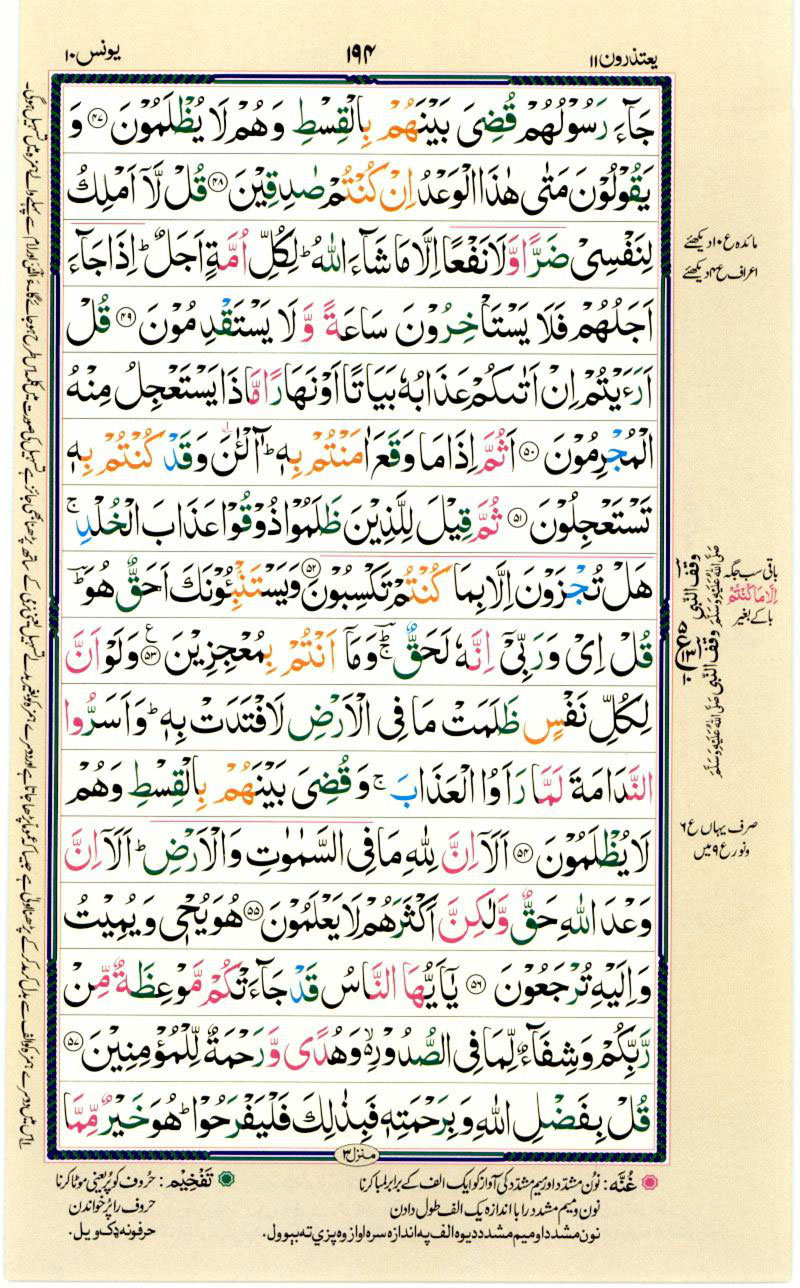 یعتذرون ۱۱
۱۹۴
یونس ۱۰
جَآءَ رَسُوْلُهُمْ قُضِیَ بَیْنَهُمْ بِالْقِسْطِ وَهُمْ لَا یُظْلَمُوْنَ ۴۷ وَ
یَقُوْلُوْنَ مَتٰی هٰذَا الْوَعْدُ اِنْ كُنْتُمْ صٰدِقِیْنَ ۴۸ قُلْ لَّاۤ اَمْلِكُ
لِنَفْسِیْ ضَرًّا وَّلَا نَفْعًا اِلَّا مَا شَآءَ اللّٰهُ ؕ لِكُلِّ اُمَّةٍ اَجَلٌ ؕ اِذَا جَآءَ
اَجَلُهُمْ فَلَا یَسْتَاْخِرُوْنَ سَاعَةً وَّ لَا یَسْتَقْدِمُوْنَ ۴۹ قُلْ
اَرَءَیْتُمْ اِنْ اَتٰىكُمْ عَذَابُهٗ بَیَاتًا اَوْ نَهَارًا مَّاذَا یَسْتَعْجِلُ مِنْهُ
الْمُجْرِمُوْنَ ۵۰ اَثُمَّ اِذَا مَا وَقَعَ اٰمَنْتُمْ بِهٖ ؕ آٰلْـٰٔنَ وَقَدْ كُنْتُمْ بِهٖ
تَسْتَعْجِلُوْنَ ۵۱ ثُمَّ قِیْلَ لِلَّذِیْنَ ظَلَمُوْا ذُوْقُوْا عَذَابَ الْخُلْدِ ۚ
هَلْ تُجْزَوْنَ اِلَّا بِمَا كُنْتُمْ تَكْسِبُوْنَ ۵۲ وَیَسْتَنْۢبِـُٔوْنَكَ اَحَقٌّ هُوَ ؕ
قُلْ اِیْ وَرَبِّیْۤ اِنَّهٗ لَحَقٌّ ؔۚ وَمَاۤ اَنْتُمْ بِمُعْجِزِیْنَ ۵۳ ع وَلَوْ اَنَّ
لِكُلِّ نَفْسٍ ظَلَمَتْ مَا فِی الْاَرْضِ لَافْتَدَتْ بِهٖ ؕ وَاَسَرُّوا
النَّدَامَةَ لَمَّا رَاَوُا الْعَذَابَ ۚ وَقُضِیَ بَیْنَهُمْ بِالْقِسْطِ وَهُمْ
لَا یُظْلَمُوْنَ ۵۴ اَلَاۤ اِنَّ لِلّٰهِ مَا فِی السَّمٰوٰتِ وَالْاَرْضِ ؕ اَلَاۤ اِنَّ
وَعْدَ اللّٰهِ حَقٌّ وَّلٰكِنَّ اَكْثَرَهُمْ لَا یَعْلَمُوْنَ ۵۵ هُوَ یُحْیٖ وَیُمِیْتُ
وَاِلَیْهِ تُرْجَعُوْنَ ۵۶ یٰۤاَیُّهَا النَّاسُ قَدْ جَآءَتْكُمْ مَّوْعِظَةٌ مِّنْ
رَّبِّكُمْ وَشِفَآءٌ لِّمَا فِی الصُّدُوْرِ ۙ۬ وَهُدًی وَّرَحْمَةٌ لِّلْمُؤْمِنِیْنَ ۵۷
قُلْ بِفَضْلِ اللّٰهِ وَبِرَحْمَتِهٖ فَبِذٰلِكَ فَلْیَفْرَحُوْا ؕ هُوَ خَیْرٌ مِّمَّا
منزل ۳
مائدہ ع ۱۰ دیکھئے
اعراف ع ۴ دیکھئے
باقی سب جگہ
اِلَّا مَا كُنْتُمْ
با کے بغیر
وقف النبی صلی اللہ علیہ وسلم
وقف النبی صلی اللہ علیہ وسلم
صرف یہاں ع ۶
و نور ع ۹ میں
غُنّه: نون مشدد اور میم مشدد کی آواز کو ایک الف کے برابر لمبا کرنا
نون و میم مشدد را با اندازہ یک الف طول دادن
نون مشدد او میم مشدد د یوہ الف په اندازہ سرہ اواز وہ پزي ته بیوول.
تَفْخِیْم: حروف کو پُر یعنی موٹا کرنا
حروف را پُر خواندن
حرفونه ډک ویل.